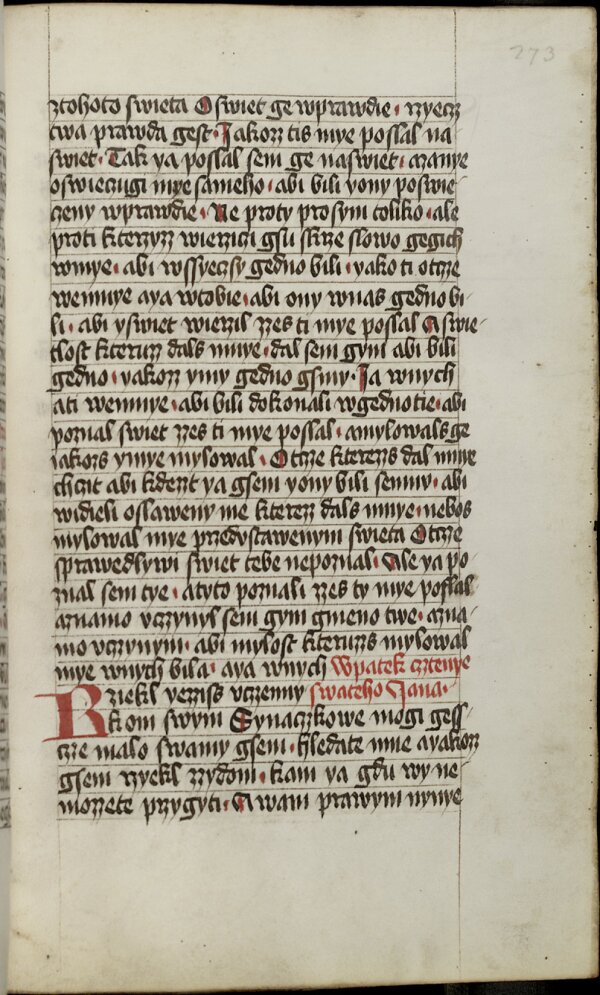 273
ztohoto swieta O swiet ge wprawdie · rzyecz
twa prawda gest · Jakorz tis mye poslal na
swiet · Tak ya poslal sem ge naswiet · azanye
oswieczugi mye sameho · abi bili yony poswie
czeny wprawdie · Ne proty prosym toliko · ale
proti kterzyz wierzici gsu skrze slowo gegich
wmye · abi wssyeczsy gedno bili · yako ti otcze
wemnye aya wtobie · abi ony wnas gedno bi
li · abi yswiet wierzil zzes ti mye poslal A swie
tlost kteruz dals mnye · dal sem gym abi bili
gedno · yakozz ymy gedno gsmy · Ja wnych
ati wemnye · abi bili dokonali wgednotie · abi
poznal swiet zzes ti mye poslal · amylowals ge
iakozs ymye mylowal · Otcze kterezs dal mnye
chczit abi kdezt ya gsem yony bili semny · abi
widieli oslaweny me kterez dals mnye · nebos
mylowal mye przedystawenym swieta Otcze
sprawedlywi swiet tebe nepoznal · Ale ya po
znal sem tye · atyto poznali zzes ty mye poslal
aznamo vczynyl sem gym gmeno twe · azna
mo vczynym · abi mylost kteruzs mylowal
mye wnych bila · aya wnych Wpatek cztenye
Rziekl yeziss vczenny swateho Jana ·
kom swym Synaczkowe mogi gess
cze malo swamy gsem · hledate mne ayakozz
gsem rzyekl zzydom · kam ya gdu wy ne
mozzete przygyti · A wam prawym nynye